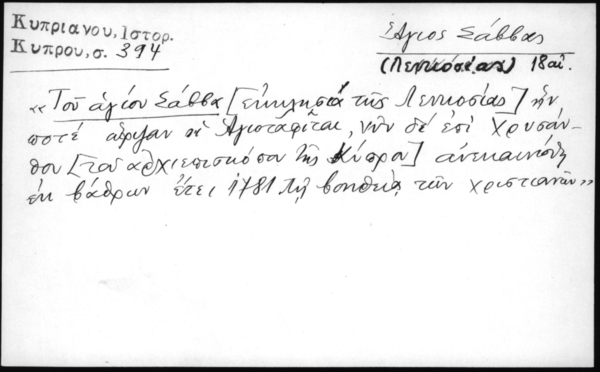 Κυπριανου, Ιστορ.
Κυπρου, σ. 394
Ἅγιος Σάββας
(Λευκοσίας) 18 αἰ.
«Τοῦ ἁγίου Σάββα [ἐκκλησία τῆς Λευκοσίας] ἣν
ποτέ εἶχαν οἱ Ἁγιοταφῖται, νῦν δέ ἐπί Χρυσάν-
θου [τοῦ ἀρχιεπισκόπου τῆς Κύπρου] ἀνεκαινίσθη
ἐκ βάθρων ἔτει 1781 τῇ βοηθείᾳ τῶν χριστιανῶν»